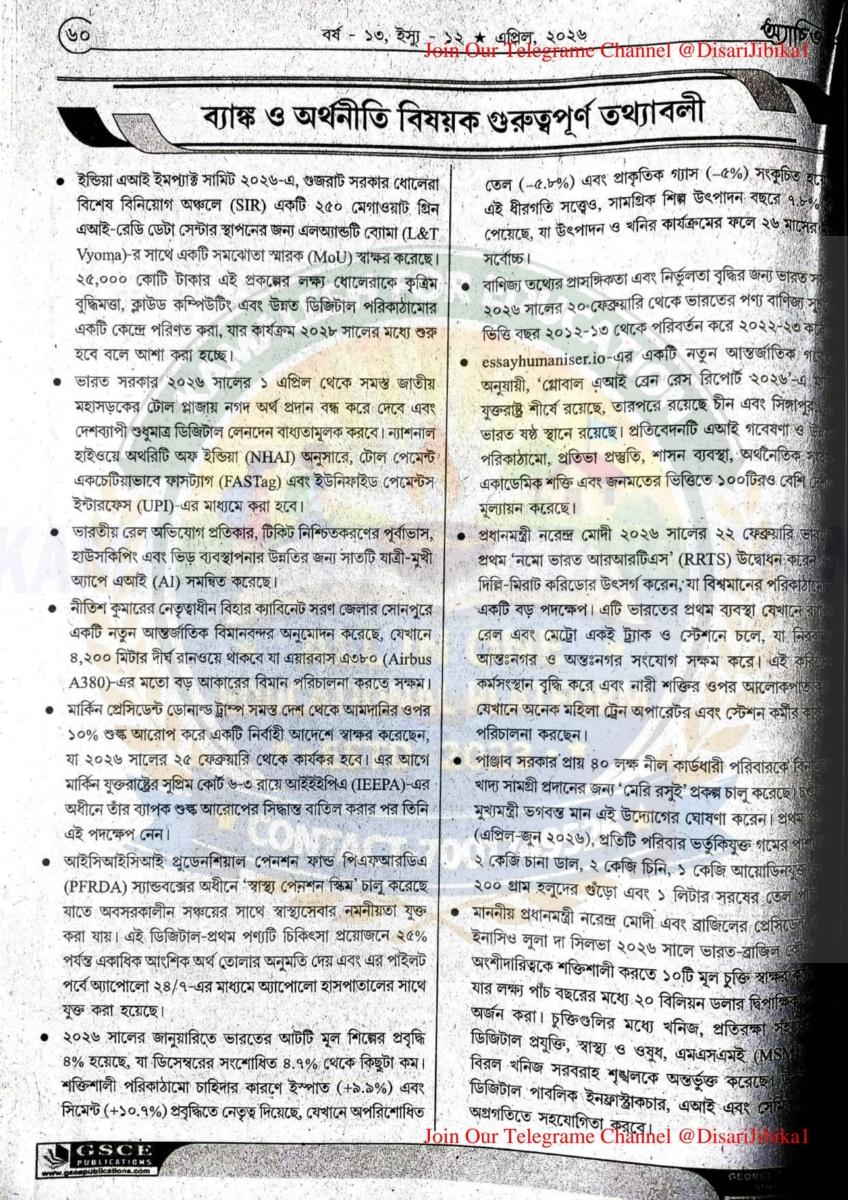 ৬০
বর্ষ - ১৩, ইস্যু - ১২ ★ এপ্রিল, ২০২৬
Join Our Telegrame Channel @DisariJibika1
ব্যাঙ্ক ও অর্থনীতি বিষয়ক গুরুত্বপূর্ণ তথ্যাবলী
• ইন্ডিয়া এআই ইমপ্যাক্ট সামিট ২০২৬-এ, গুজরাট সরকার ধোলেরা
বিশেষ বিনিয়োগ অঞ্চলে (SIR) একটি ২৫০ মেগাওয়াট গ্রিন
এআই-রেডি ডেটা সেন্টার স্থাপনের জন্য এলঅ্যান্ডটি ব্যোমা (L&T
Vyoma)-র সাথে একটি সমঝোতা স্মারক (MoU) স্বাক্ষর করেছে।
২৫,০০০ কোটি টাকার এই প্রকল্পের লক্ষ্য ধোলেরাকে কৃত্রিম
বুদ্ধিমত্তা, ক্লাউড কম্পিউটিং এবং উন্নত ডিজিটাল পরিকাঠামোর
একটি কেন্দ্রে পরিণত করা, যার কার্যক্রম ২০২৮ সালের মধ্যে শুরু
হবে বলে আশা করা হচ্ছে।
• ভারত সরকার ২০২৬ সালের ১ এপ্রিল থেকে সমস্ত জাতীয়
মহাসড়কের টোল প্লাজায় নগদ অর্থ প্রদান বন্ধ করে দেবে এবং
দেশব্যাপী শুধুমাত্র ডিজিটাল লেনদেন বাধ্যতামূলক করবে। ন্যাশনাল
হাইওয়ে অথরিটি অফ ইন্ডিয়া (NHAI) অনুসারে, টোল পেমেন্ট
একচেটিয়াভাবে ফাস্ট্যাগ (FASTag) এবং ইউনিফাইড পেমেন্টস
ইন্টারফেস (UPI)-এর মাধ্যমে করা হবে।
• ভারতীয় রেল অভিযোগ প্রতিকার, টিকিট নিশ্চিতকরণের পূর্বাভাস,
হাউসকিপিং এবং ভিড় ব্যবস্থাপনার উন্নতির জন্য সাতটি যাত্রী-মুখী
অ্যাপে এআই (AI) সমন্বিত করেছে।
• নীতিশ কুমারের নেতৃত্বাধীন বিহার ক্যাবিনেট সরণ জেলার সোনপুরে
একটি নতুন আন্তর্জাতিক বিমানবন্দর অনুমোদন করেছে, যেখানে
৪,২০০ মিটার দীর্ঘ রানওয়ে থাকবে যা এয়ারবাস এ৩৮০ (Airbus
A380)-এর মতো বড় আকারের বিমান পরিচালনা করতে সক্ষম।
• মার্কিন প্রেসিডেন্ট ডোনাল্ড ট্রাম্প সমস্ত দেশ থেকে আমদানির ওপর
১০% শুল্ক আরোপ করে একটি নির্বাহী আদেশে স্বাক্ষর করেছেন,
যা ২০২৬ সালের ২৫ ফেব্রুয়ারি থেকে কার্যকর হবে। এর আগে
মার্কিন যুক্তরাষ্ট্রের সুপ্রিম কোর্ট ৬-৩ রায়ে আইইইপিএ (IEEPA)-এর
অধীনে তাঁর ব্যাপক শুল্ক আরোপের সিদ্ধান্ত বাতিল করার পর তিনি
এই পদক্ষেপ নেন।
• আইসিআইসিআই প্রুডেনশিয়াল পেনশন ফান্ড পিএফআরডিএ
(PFRDA) স্যান্ডবক্সের অধীনে ‘স্বাস্থ্য পেনশন স্কিম’ চালু করেছে
যাতে অবসরকালীন সঞ্চয়ের সাথে স্বাস্থ্যসেবার নমনীয়তা যুক্ত
করা যায়। এই ডিজিটাল-প্রথম পণ্যটি চিকিৎসা প্রয়োজনে ২৫%
পর্যন্ত একাধিক আংশিক অর্থ তোলার অনুমতি দেয় এবং এর পাইলট
পর্বে অ্যাপোলো ২৪/৭-এর মাধ্যমে অ্যাপোলো হাসপাতালের সাথে
যুক্ত করা হয়েছে।
• ২০২৬ সালের জানুয়ারিতে ভারতের আটটি মূল শিল্পের প্রবৃদ্ধি
৪% হয়েছে, যা ডিসেম্বরের সংশোধিত ৪.৭% থেকে কিছুটা কম।
শক্তিশালী পরিকাঠামো চাহিদার কারণে ইস্পাত (+৯.৯%) এবং
সিমেন্ট (+১০.৭%) প্রবৃদ্ধিতে নেতৃত্ব দিয়েছে, যেখানে অপরিশোধিত
তেল (–৫.৮%) এবং প্রাকৃতিক গ্যাস (–৫%) সংকুচিত
এই ধীরগতি সত্ত্বেও, সামগ্রিক শিল্প উৎপাদন বছরে ৭.৮%
পেয়েছে, যা উৎপাদন ও খনির কার্যক্রমের ফলে ২৬ মাসের
সর্বোচ্চ।
• বাণিজ্য তথ্যের প্রাসঙ্গিকতা এবং নির্ভুলতা বৃদ্ধির জন্য ভারত
২০২৬ সালের ২০ ফেব্রুয়ারি থেকে ভারতের পণ্য বাণিজ্য
ভিত্তি বছর ২০১২-১৩ থেকে পরিবর্তন করে ২০২২-২৩
• essayhumaniser.io-এর একটি নতুন আন্তর্জাতিক
অনুযায়ী, ‘গ্লোবাল এআই ব্রেন রেস রিপোর্ট ২০২৬’-এ
যুক্তরাষ্ট্র শীর্ষে রয়েছে, তারপরে রয়েছে চীন এবং সিঙ্গাপুর,
ভারত ষষ্ঠ স্থানে রয়েছে। প্রতিবেদনটি এআই গবেষণা ও
পরিকাঠামো, প্রতিভা প্রস্তুতি, শাসন ব্যবস্থা, অর্থনৈতিক
একাডেমিক শক্তি এবং জনমতের ভিত্তিতে ১০০টিরও বেশি
মূল্যায়ন করেছে।
• প্রধানমন্ত্রী নরেন্দ্র মোদী ২০২৬ সালের ২২ ফেব্রুয়ারি
প্রথম ‘নমো ভারত আরআরটিএস’ (RRTS) উদ্বোধন
দিল্লি-মিরাট করিডোর উৎসর্গ করেন, যা বিশ্বমানের
একটি বড় পদক্ষেপ। এটি ভারতের প্রথম ব্যবস্থা যেখানে
রেল এবং মেট্রো একই ট্র্যাক ও স্টেশনে চলে, যা
আন্তঃনগর ও অন্তঃনগর সংযোগ সক্ষম করে। এই
কর্মসংস্থান বৃদ্ধি করে এবং নারী শক্তির ওপর
যেখানে অনেক মহিলা ট্রেন অপারেটর এবং স্টেশন কর্মীর
পরিচালনা করছেন।
• পাঞ্জাব সরকার প্রায় ৪০ লক্ষ নীল কার্ডধারী পরিবারকে
খাদ্য সামগ্রী প্রদানের জন্য ‘মেরি রসুই’ প্রকল্প চালু করেছে।
মুখ্যমন্ত্রী ভগবন্ত মান এই উদ্যোগের ঘোষণা করেন।
(এপ্রিল-জুন ২০২৬), প্রতিটি পরিবার ভর্তুকিযুক্ত গমের
২ কেজি চানা ডাল, ২ কেজি চিনি, ১ কেজি
২০০ গ্রাম হলুদের গুঁড়ো এবং ১ লিটার সরষের তেল
• মাননীয় প্রধানমন্ত্রী নরেন্দ্র মোদী এবং ব্রাজিলের
ইনাসিও লুলা দা সিলভা ২০২৬ সালে ভারত-ব্রাজিল
অংশীদারিত্বকে শক্তিশালী করতে ১০টি মূল চুক্তি স্বাক্ষর
যার লক্ষ্য পাঁচ বছরের মধ্যে ২০ বিলিয়ন ডলার
অর্জন করা। চুক্তিগুলির মধ্যে খনিজ, প্রতিরক্ষা
ডিজিটাল প্রযুক্তি, স্বাস্থ্য ও ওষুধ, এমএসএমই
বিরল খনিজ সরবরাহ শৃঙ্খলকে অন্তর্ভুক্ত করেছে।
ডিজিটাল পাবলিক ইনফ্রাস্ট্রাকচার, এআই এবং
অগ্রগতিতে সহযোগিতা করবে।
Join Our Telegrame Channel @DisariJibika1
GSCE
PUBLICATIONS
www.gscepublications.com